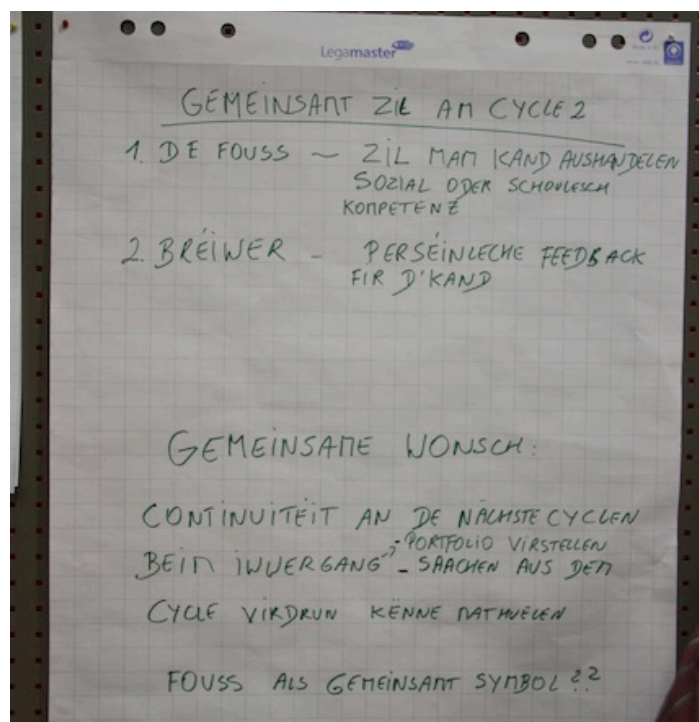 Legamaster
GEMEINSAMT ZIL AM CYCLE 2
1. DE FOUSS – ZIL MAM KAND AUSHANDELEN
SOZIAL ODER SCHOULESCH
KOMPETENZ
2. BRÉIWER – PERSÉINLECHE FEEDBACK
FIR D'KAND
GEMEINSAME WONSCH:
CONTINUITÉIT AN DE NÄCHSTE CYCLEN
- PORTFOLIO VIRSTELLEN
BEIM IWWERGANG - SAACHEN AUS DEM
CYCLE VIRDRUN KËNNE MATHUELEN
FOUSS ALS GEMEINSAMT SYMBOL ??